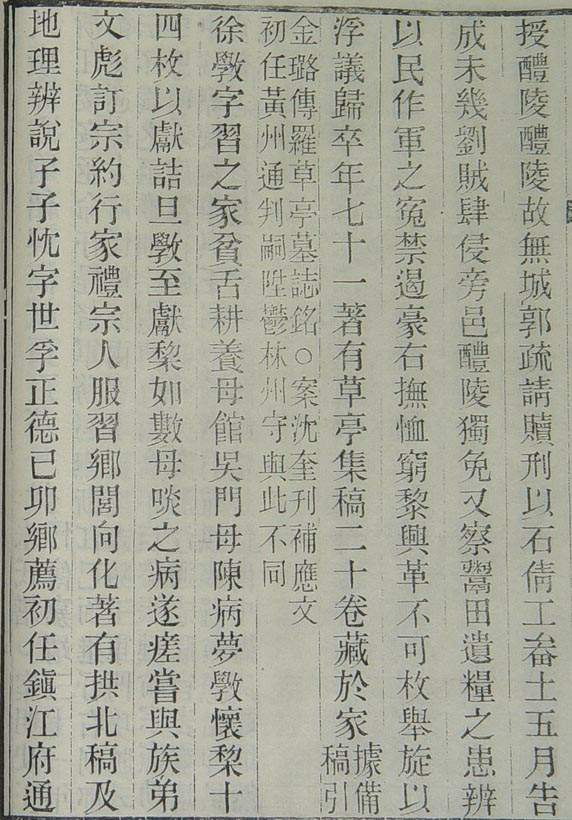 授醴陵醴陵故無城郭疏請贖刑以石倩工畚土五月告
成未幾劉賊肆侵旁邑醴陵獨免又察鬻田遺糧之患辨
以民作軍之寃禁遏豪右撫恤窮黎興革不可枚舉旋以
浮議歸卒年七十一著有草亭集稿二十卷藏於家據備
稿引
金璐傳羅草亭墓誌銘○案沈奎刊補應文
初任黃州通判嗣陞鬱林州守與此不同
徐斆字習之家貧舌耕養母館吳門母陳病夢斆懷棃十
四枚以獻詰旦斆至獻棃如數母啖之病遂瘥嘗與族弟
文彪訂宗約行家禮宗人服習鄉閭向化著有拱北稿及
地理辨說子子忱字世孚正德己卯鄉薦初任鎮江府通